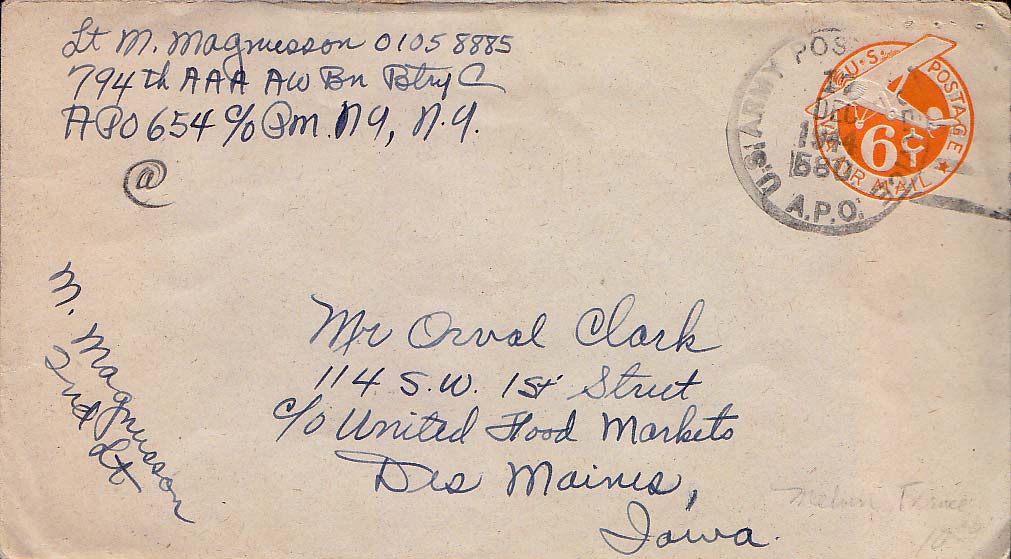 Lt M. Magnusson 01058885
794th AAA AW Bn Btry C
APO 654 c/o Pm. NY, N.Y.
@
U.S. ARMY POSTAL
12
DEC
1944
A.P.O.
U.S. POSTAGE
6¢
VIA AIR MAIL
M. Magnusson
2nd Lt
Mr Orval Clark
114 S.W. 1st Street
c/o United Food Markets
Des Maines,
Iowa.